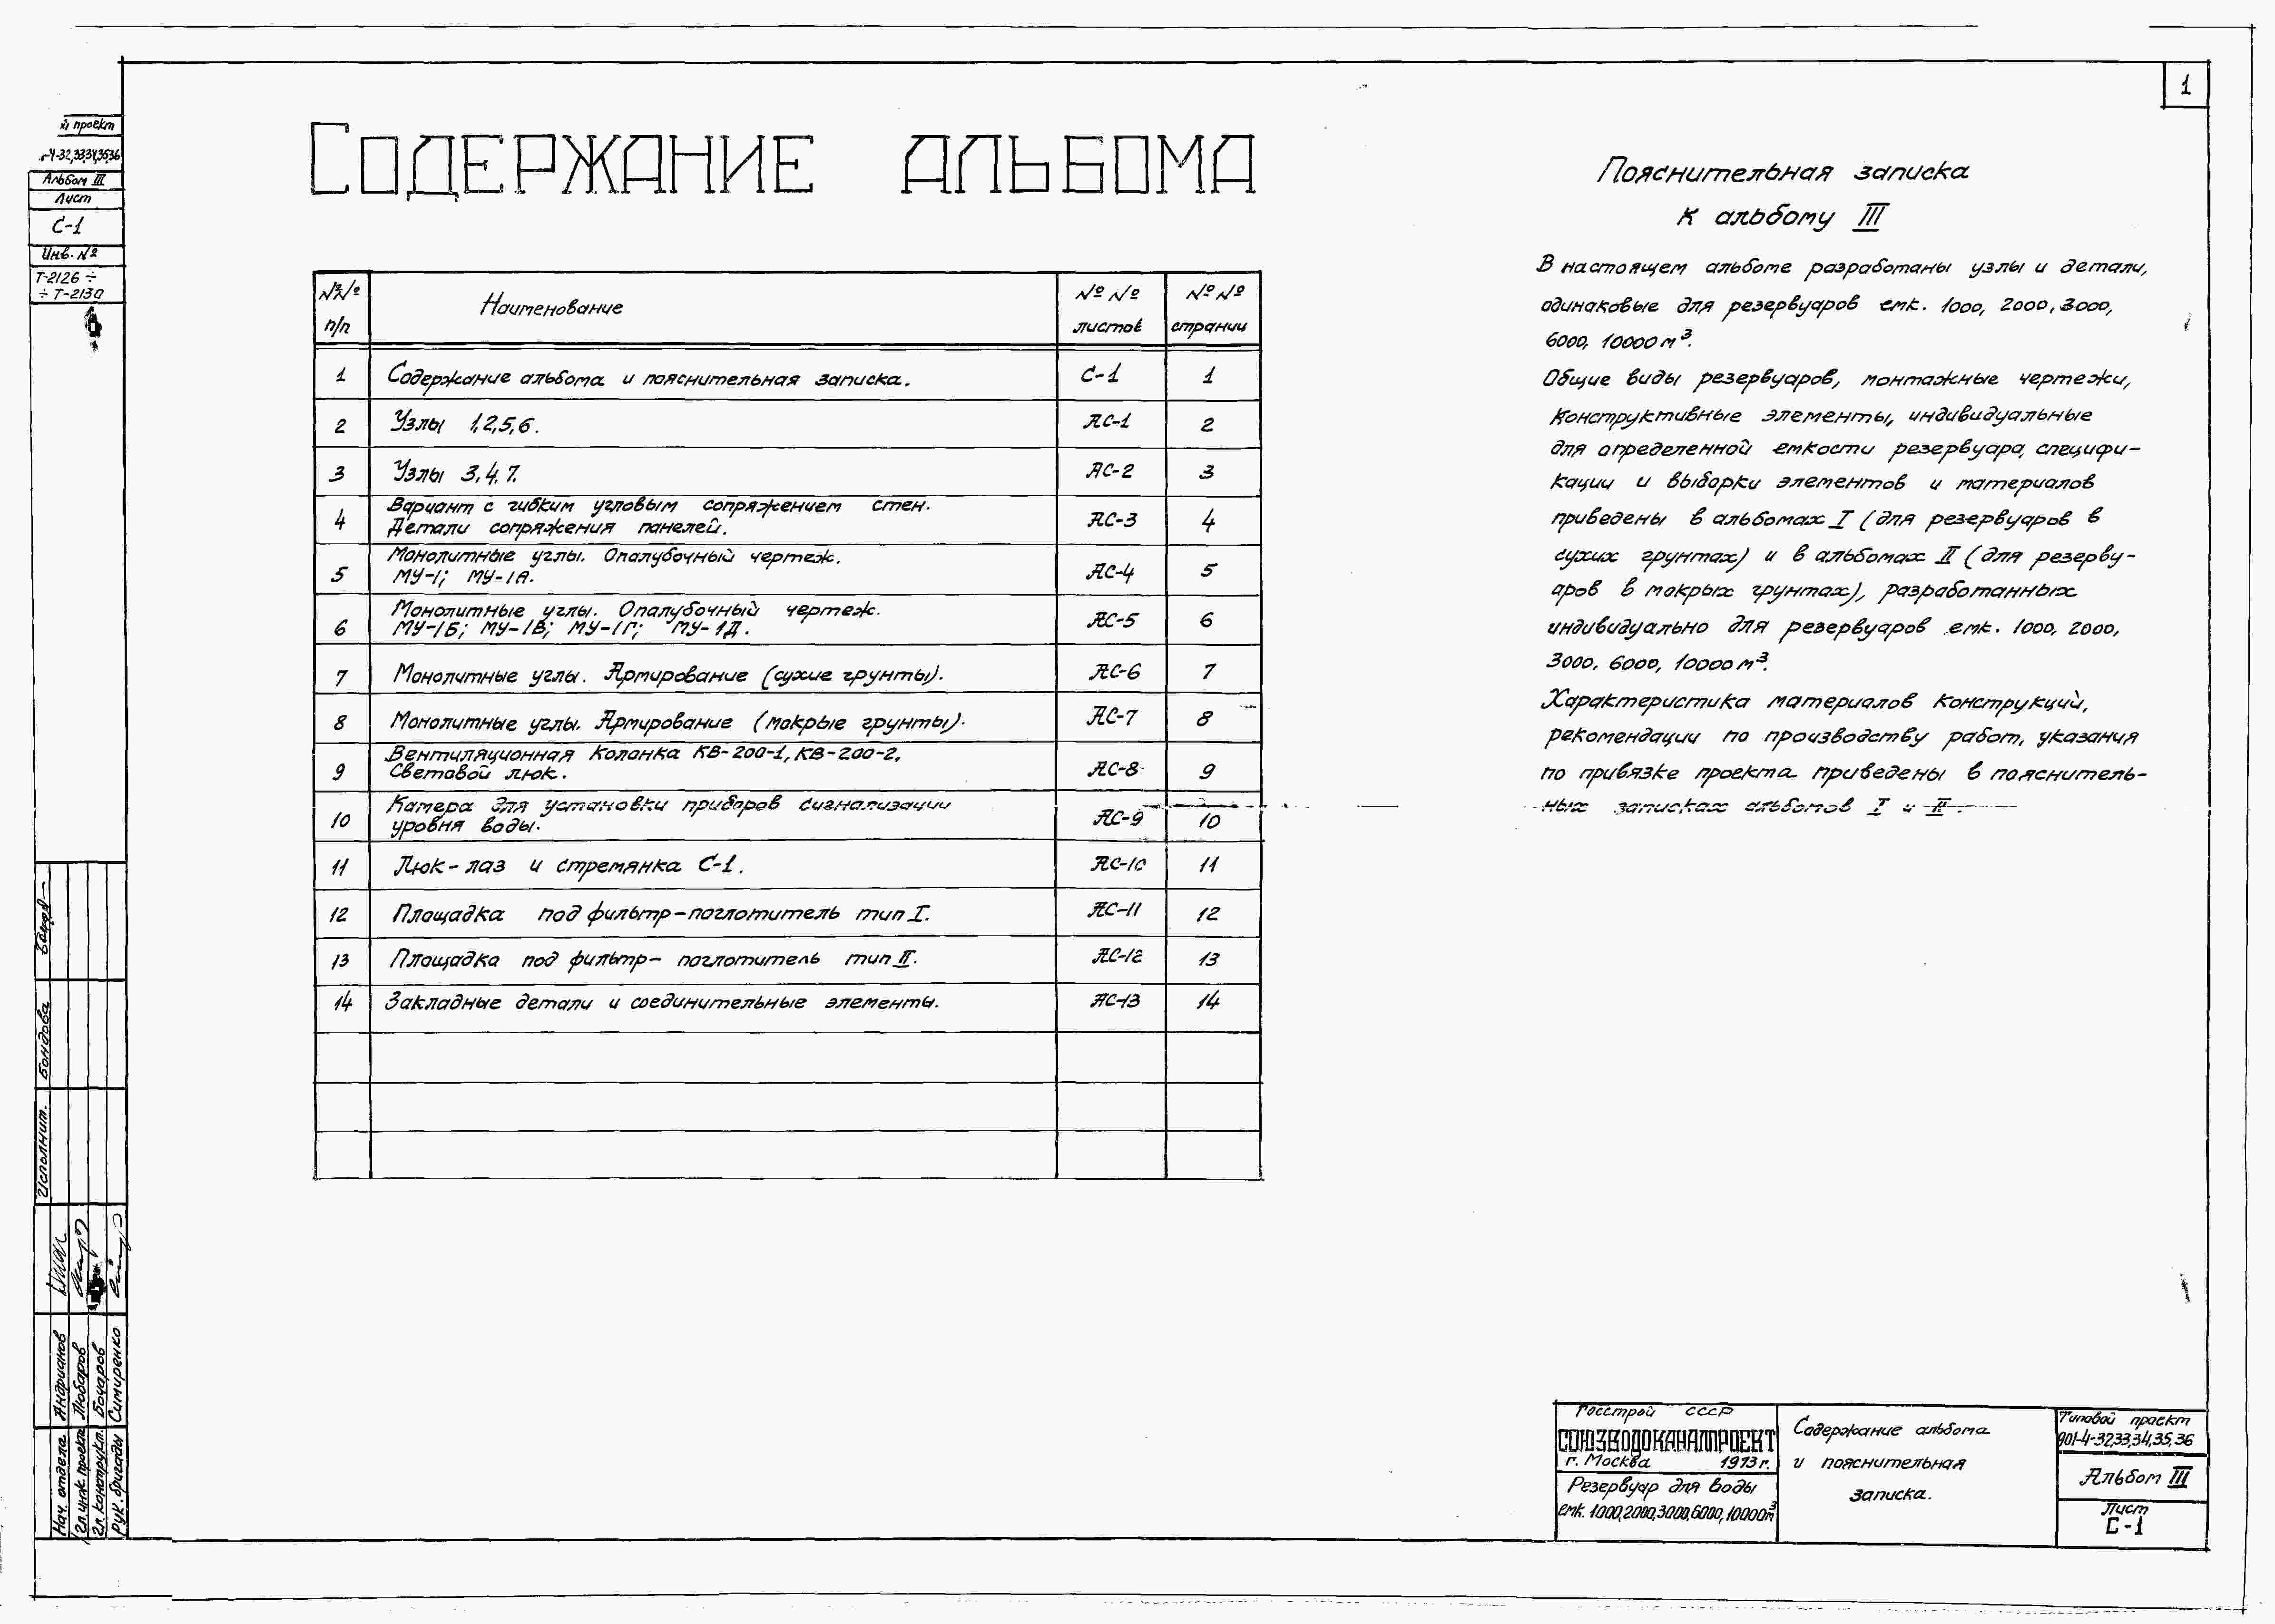 1
й проект
-4-32,33,34,35,36
Альбом III
Лист
С-1
Инв. №
Т-2126 ÷
÷ Т-2130
СОДЕРЖАНИЕ АЛЬБОМА
№№ п/п
Наименование
№ № листов
№ № страниц
1 Содержание альбома и пояснительная записка. С-1 1
2 Узлы 1,2,5,6. АС-1 2
3 Узлы 3,4,7. АС-2 3
4 Вариант с гибким угловым сопряжением стен.
Детали сопряжения панелей. АС-3 4
5 Монолитные углы. Опалубочный чертеж.
МУ-1; МУ-1А. АС-4 5
6 Монолитные углы. Опалубочный чертеж.
МУ-1Б; МУ-1В; МУ-1Г; МУ-1Д. АС-5 6
7 Монолитные углы. Армирование (сухие грунты). АС-6 7
8 Монолитные углы. Армирование (мокрые грунты). АС-7 8
9 Вентиляционная колонка КВ-200-1, КВ-200-2.
Световой люк. АС-8 9
10 Камера для установки приборов сигнализации
уровня воды. АС-9 10
11 Люк-лаз и стремянка С-1. АС-10 11
12 Площадка под фильтр-поглотитель тип I. АС-11 12
13 Площадка под фильтр- поглотитель тип II. АС-12 13
14 Закладные детали и соединительные элементы. АС-13 14
Пояснительная записка
к альбому III
В настоящем альбоме разработаны узлы и детали,
одинаковые для резервуаров емк. 1000, 2000, 3000,
6000, 10000 м³.
Общие виды резервуаров, монтажные чертежи,
конструктивные элементы, индивидуальные
для определенной емкости резервуара, специфи-
кации и выборки элементов и материалов
приведены в альбомах I (для резервуаров в
сухих грунтах) и в альбомах II (для резерву-
аров в мокрых грунтах), разработанных
индивидуально для резервуаров емк. 1000, 2000,
3000, 6000, 10000 м³.
Характеристика материалов конструкций,
рекомендации по производству работ, указания
по привязке проекта приведены в пояснитель-
ных записках альбомов I и II.
Исполнит. Бондова
Нач. отдела Андрианов
Гл. инж. проекта Любаров
Гл. конструкт. Бочаров
Рук. бригады Симиренко
Госстрой СССР
СОЮЗВОДОКАНАЛПРОЕКТ
г. Москва 1973 г.
Резервуар для воды
емк. 1000,2000,3000,6000,10000м³
Содержание альбома
и пояснительная
записка.
Типовой проект
901-4-32,33,34,35,36
Альбом III
Лист
С-1